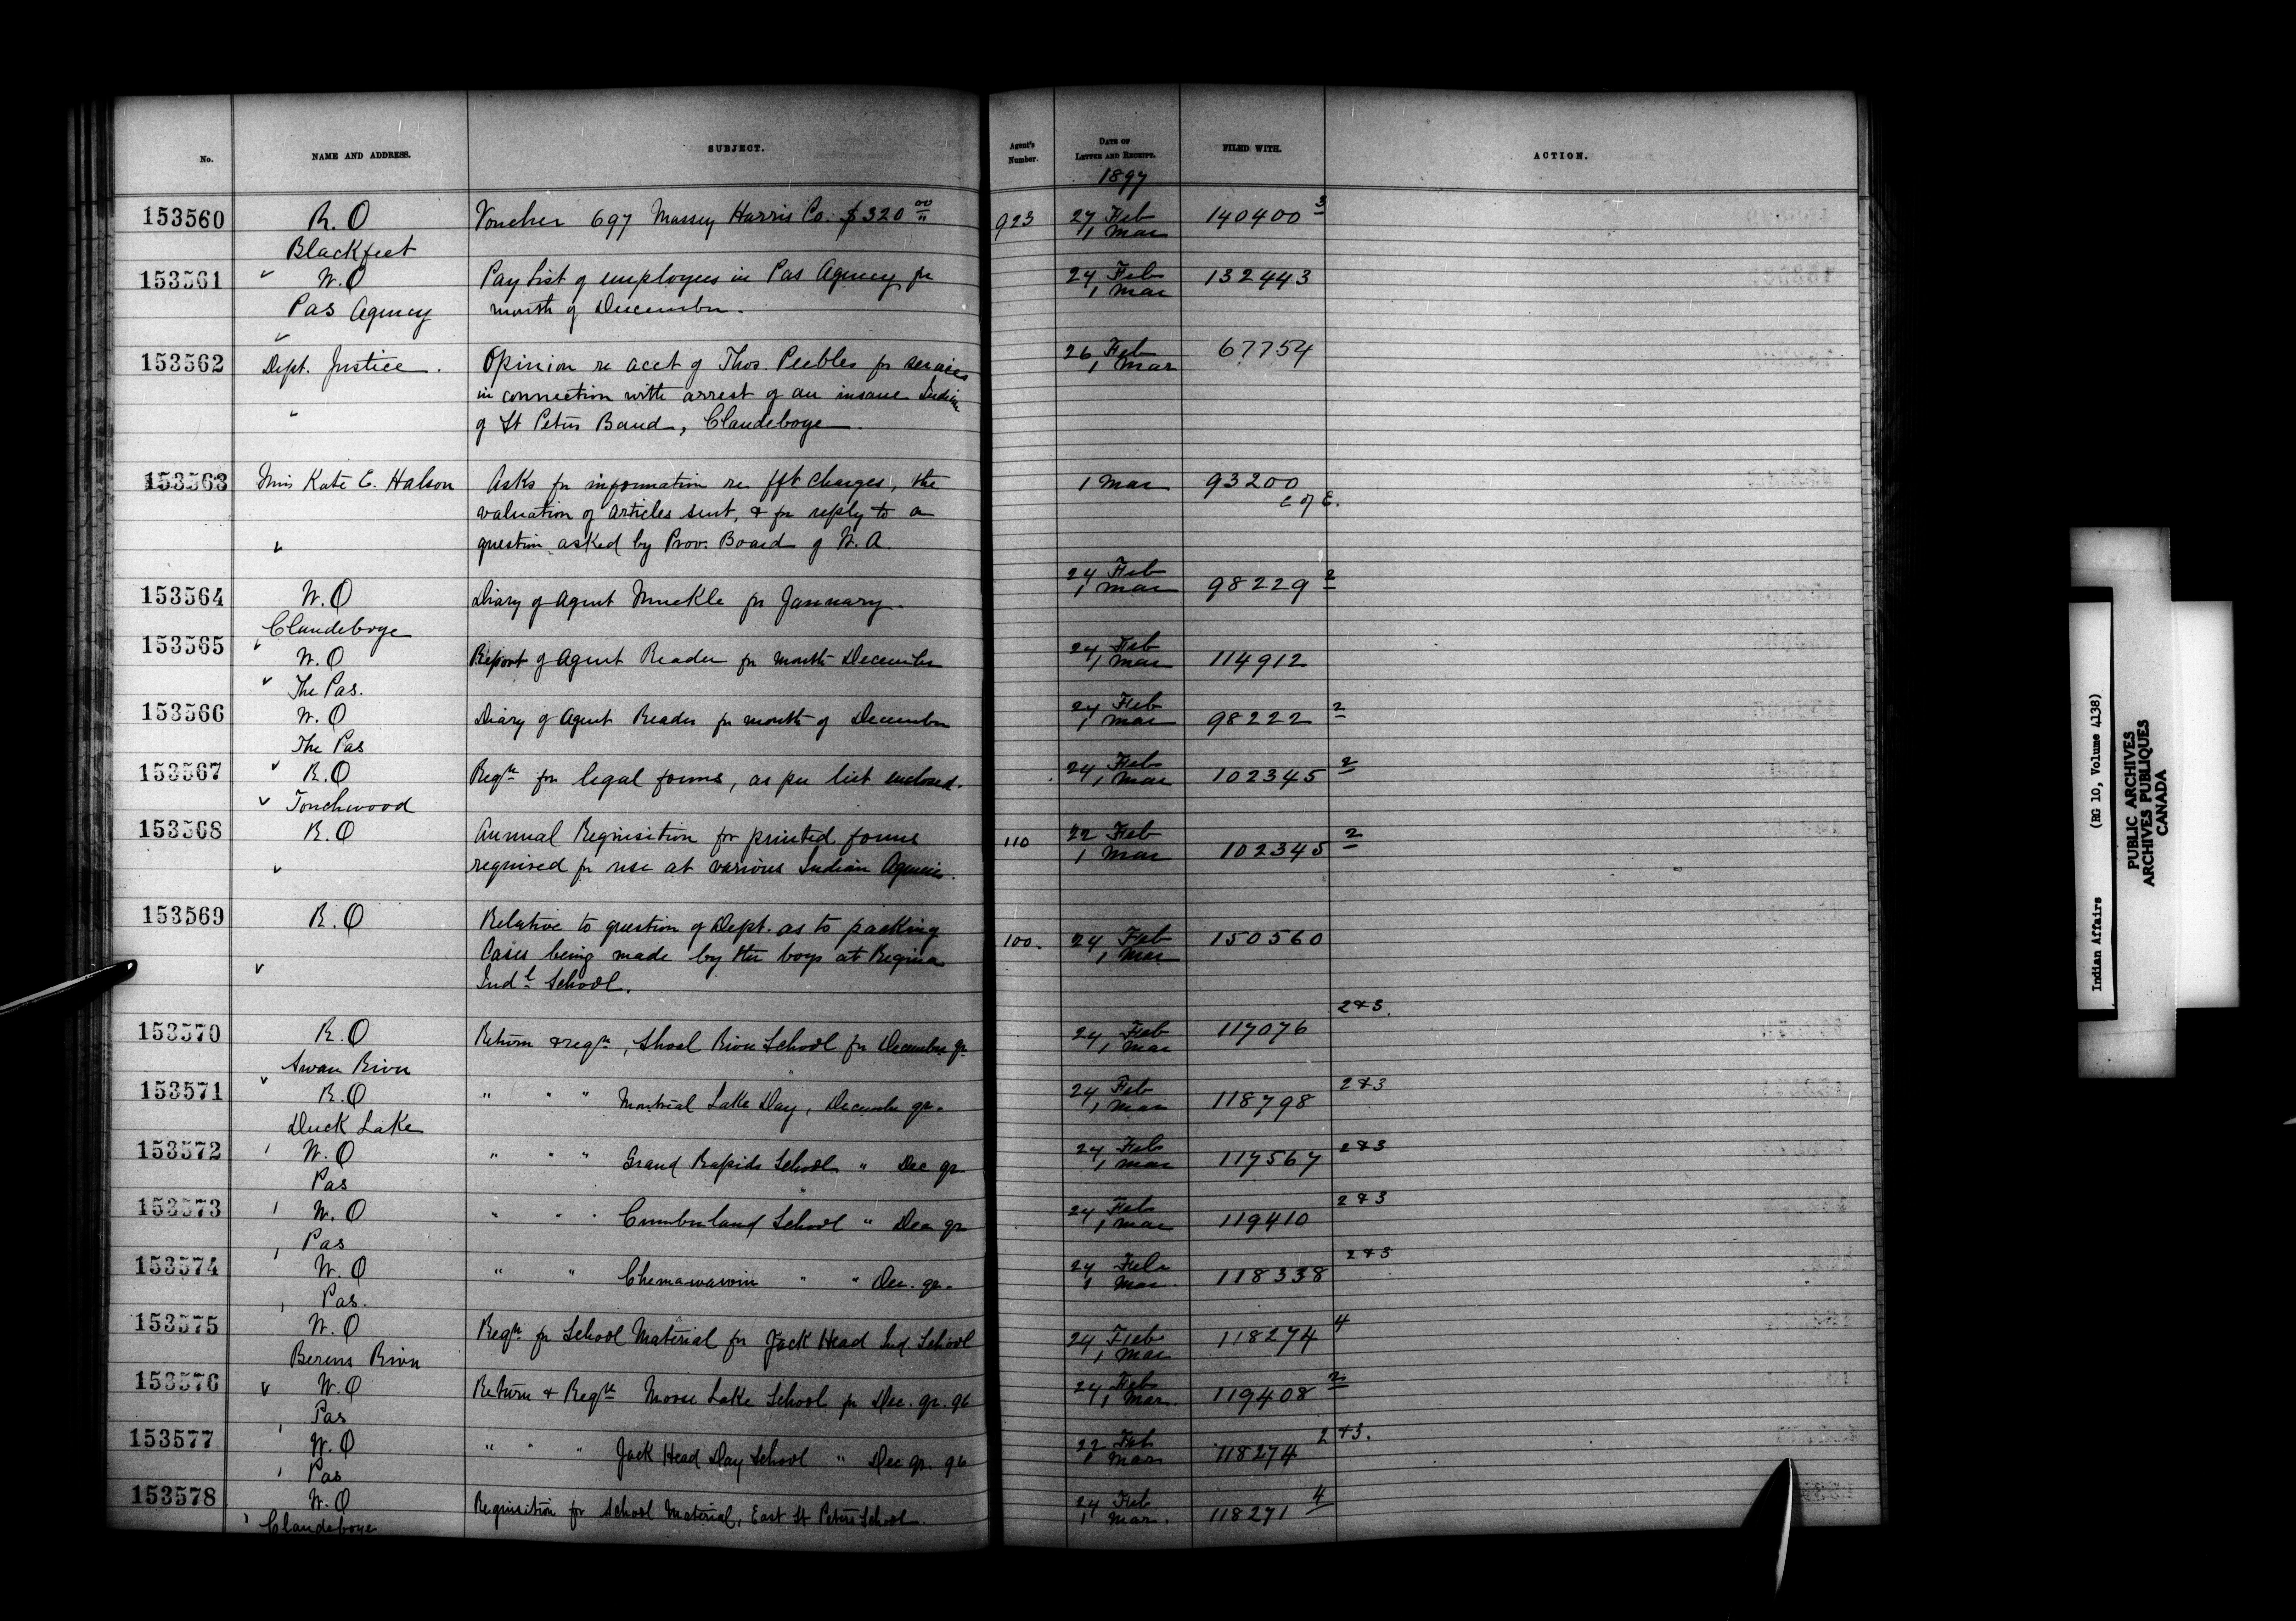 No. NAME AND ADDRESS. SUBJECT. Agent's Number. DATE OF LETTER AND RECEIPT. FILED WITH. ACTION.
1897
153560 R.O Voucher 697 Massey Harris Co. $320 00/" 923 27 Feb 140400 3
Blackfeet 1 Mar
153561 W.O Pay List of employees in Pas Agency for 24 Feb 132443
Pas Agency month of December. 1 Mar
153562 Dept. Justice. Opinion re acct of Thos. Peebles for services 26 Feb 67754
in connection with arrest of an insane Indian 1 Mar
of St Peters Band, Clandeboye.
153563 Miss Kate E. Halson Asks for information re fft charges, the 1 Mar 93200
valuation of articles sent, & for reply to a C of E.
question asked by Prov. Board of W.A.
153564 W.O Diary of Agent Muckle for January. 24 Feb 98229 2
Clandeboye 1 Mar
153565 W.O Report of Agent Reader for month December 24 Feb 114912
The Pas. 1 Mar
153566 W.O Diary of Agent Reader for month of December 24 Feb 98222 2
The Pas 1 Mar
153567 R.O Reqn for legal forms, as per list enclosed. 24 Feb 102345 2
Touchwood 1 Mar
153568 R.O Annual Requisition for printed forms 110 22 Feb 102345 2
required for use at various Indian Agencies. 1 Mar
153569 R.O Relative to question of Dept. as to packing 100. 24 Feb 150560
Cases being made by the boys at Regina 1 Mar
Indl School.
153570 R.O Return & reqn, Shoal River School for December qr 24 Feb 117076 2&3.
Swan River 1 Mar
153571 R.O " " " Montreal Lake Day, December qr. 24 Feb 118798 2&3
Duck Lake 1 Mar
153572 W.O " " " Grand Rapids School " Dec qr 24 Feb 117567 2&3
Pas 1 Mar
153573 W.O " " " Cumberland School " Dec qr 24 Feb 119410 2&3
Pas 1 Mar
153574 W.O " " Chemawawin " " Dec. qr. 24 Feb 118338 2&3
Pas. 1 Mar.
153575 W.O Reqn for School Material for Jack Head Ind. School 24 Feb 118274 4
Berens River 1 Mar
153576 W.O Return & Reqn Moose Lake School for Dec. qr. 96 24 Feb 119408 2
Pas 1 Mar.
153577 W.O " " " Jack Head Day School " Dec qr. 96 22 Feb 118274 2&3.
Pas 1 Mar
153578 W.O Requisition for School Material, East St Peters School. 24 Feb 118271 4
Clandeboye 1 Mar.
Indian Affairs (RG 10, Volume 4138)
PUBLIC ARCHIVES
ARCHIVES PUBLIQUES
CANADA